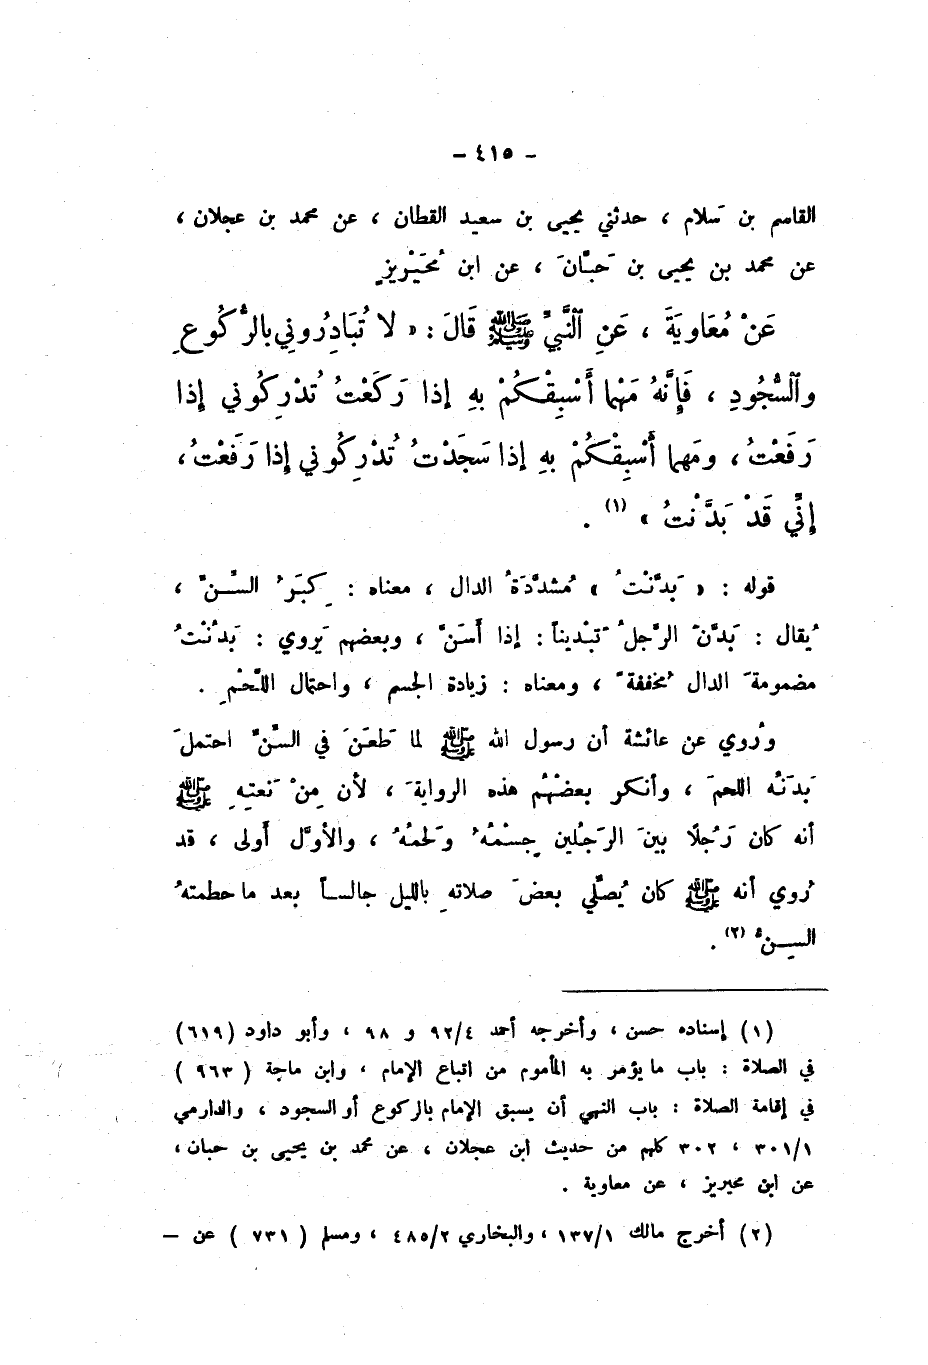 - ٤١٥ -
القاسم بن سَلام ، حدثني يحيى بن سعيد القطان ، عن محمد بن عجلان ،
عن محمد بن يحيى بن حَبَّانَ ، عن ابن مُحَيْرِيزٍ
عَنْ مُعَاوِيَةَ ، عَنِ ٱلنَّبيِّ ﷺ قَالَ : « لا تُبَادِرُونِي بالرُّكُوعِ
وٱلسُّجُودِ ، فَإِنَّهُ مَهْما أَسْبِقْكُمْ بِهِ إذا رَكَعْتُ تُدْرِكُوني إذا
رَفَعْتُ ، ومَهما أَسْبِقْكُمْ بِهِ إذا سَجَدْتُ تُدْرِكُوني إذا رَفَعْتُ ،
إنِّي قَدْ بَدَّنْتُ » (١) .
قوله : « بَدَّنْتُ » مُشدَّدَةُ الدال ، معناه : كِبَرُ السِّنِّ ،
يُقال : بَدَّنَ الرَّجلُ تَبْديناً : إذا أَسَنَّ ، وبعضهم يَروي : بَدُنْتُ
مضمومةَ الدال مُخففةً ، ومعناه : زيادة الجسم ، واحتمال اللَّحْمِ .
ورُوي عن عائشة أن رسول الله ﷺ لما طَعَنَ في السِّنِّ احتملَ
بَدَنُه اللحمَ ، وأنكر بعضُهُم هذه الروايةَ ، لأن مِنْ نَعتِهِ ﷺ
أنه كان رَجُلًا بينَ الرَجُلين جِسْمُهُ ولَحمُهُ ، والأوَّل أَولى ، قد
رُوي أنه ﷺ كان يُصلِّي بعضَ صلاتهِ بالليل جالساً بعد ما حطمتهُ
السِنُّ (٢) .
(١) إسناده حسن ، وأخرجه أحمد ٩٢/٤ و ٩٨ ، وأبو داود (٦١٩)
في الصلاة : باب ما يؤمر به المأموم من اتباع الإمام ، وابن ماجة ( ٩٦٣ )
في إقامة الصلاة : باب النهي أن يسبق الإمام بالركوع أو السجود ، والدارمي
٣٠١/١ ، ٣٠٢ كلهم من حديث ابن عجلان ، عن محمد بن يحيى بن حبان ،
عن ابن محيريز ، عن معاوية .
(٢) أخرج مالك ١٣٧/١ ، والبخاري ٤٨٥/٢ ، ومسلم ( ٧٣١ ) عن –